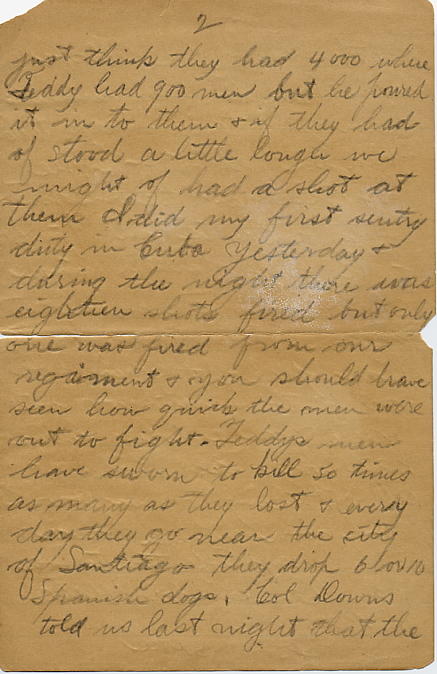 2
just think they had 4000 where
Teddy had 900 men but he poured
it in to them & if they had
of stood a little longh we
might of had a shot at
them I did my first sentry
duty in Cuba Yesterday &
during the night there was
eighteen shots fired but only
one was fired from our
regiment & you should have
seen how quick the men were
out to fight. Teddys men
have sworn to kill 50 times
as many as they lost & every
day they go near the city
of Santiago they drop 6 or 10
Spanish dogs. Col Downs
told us last night that the